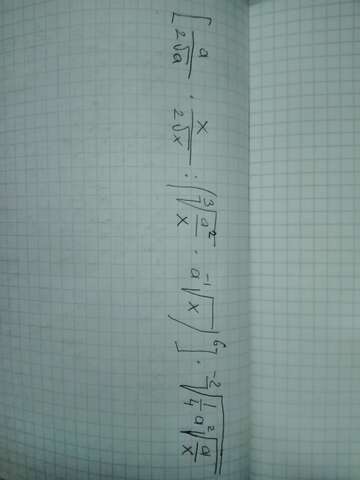 [a/(2√a) · x/(2√x) : (∛(a²/x) · a⁻¹√x)⁶] · ⁻²√(1/4 a²√(a/x))